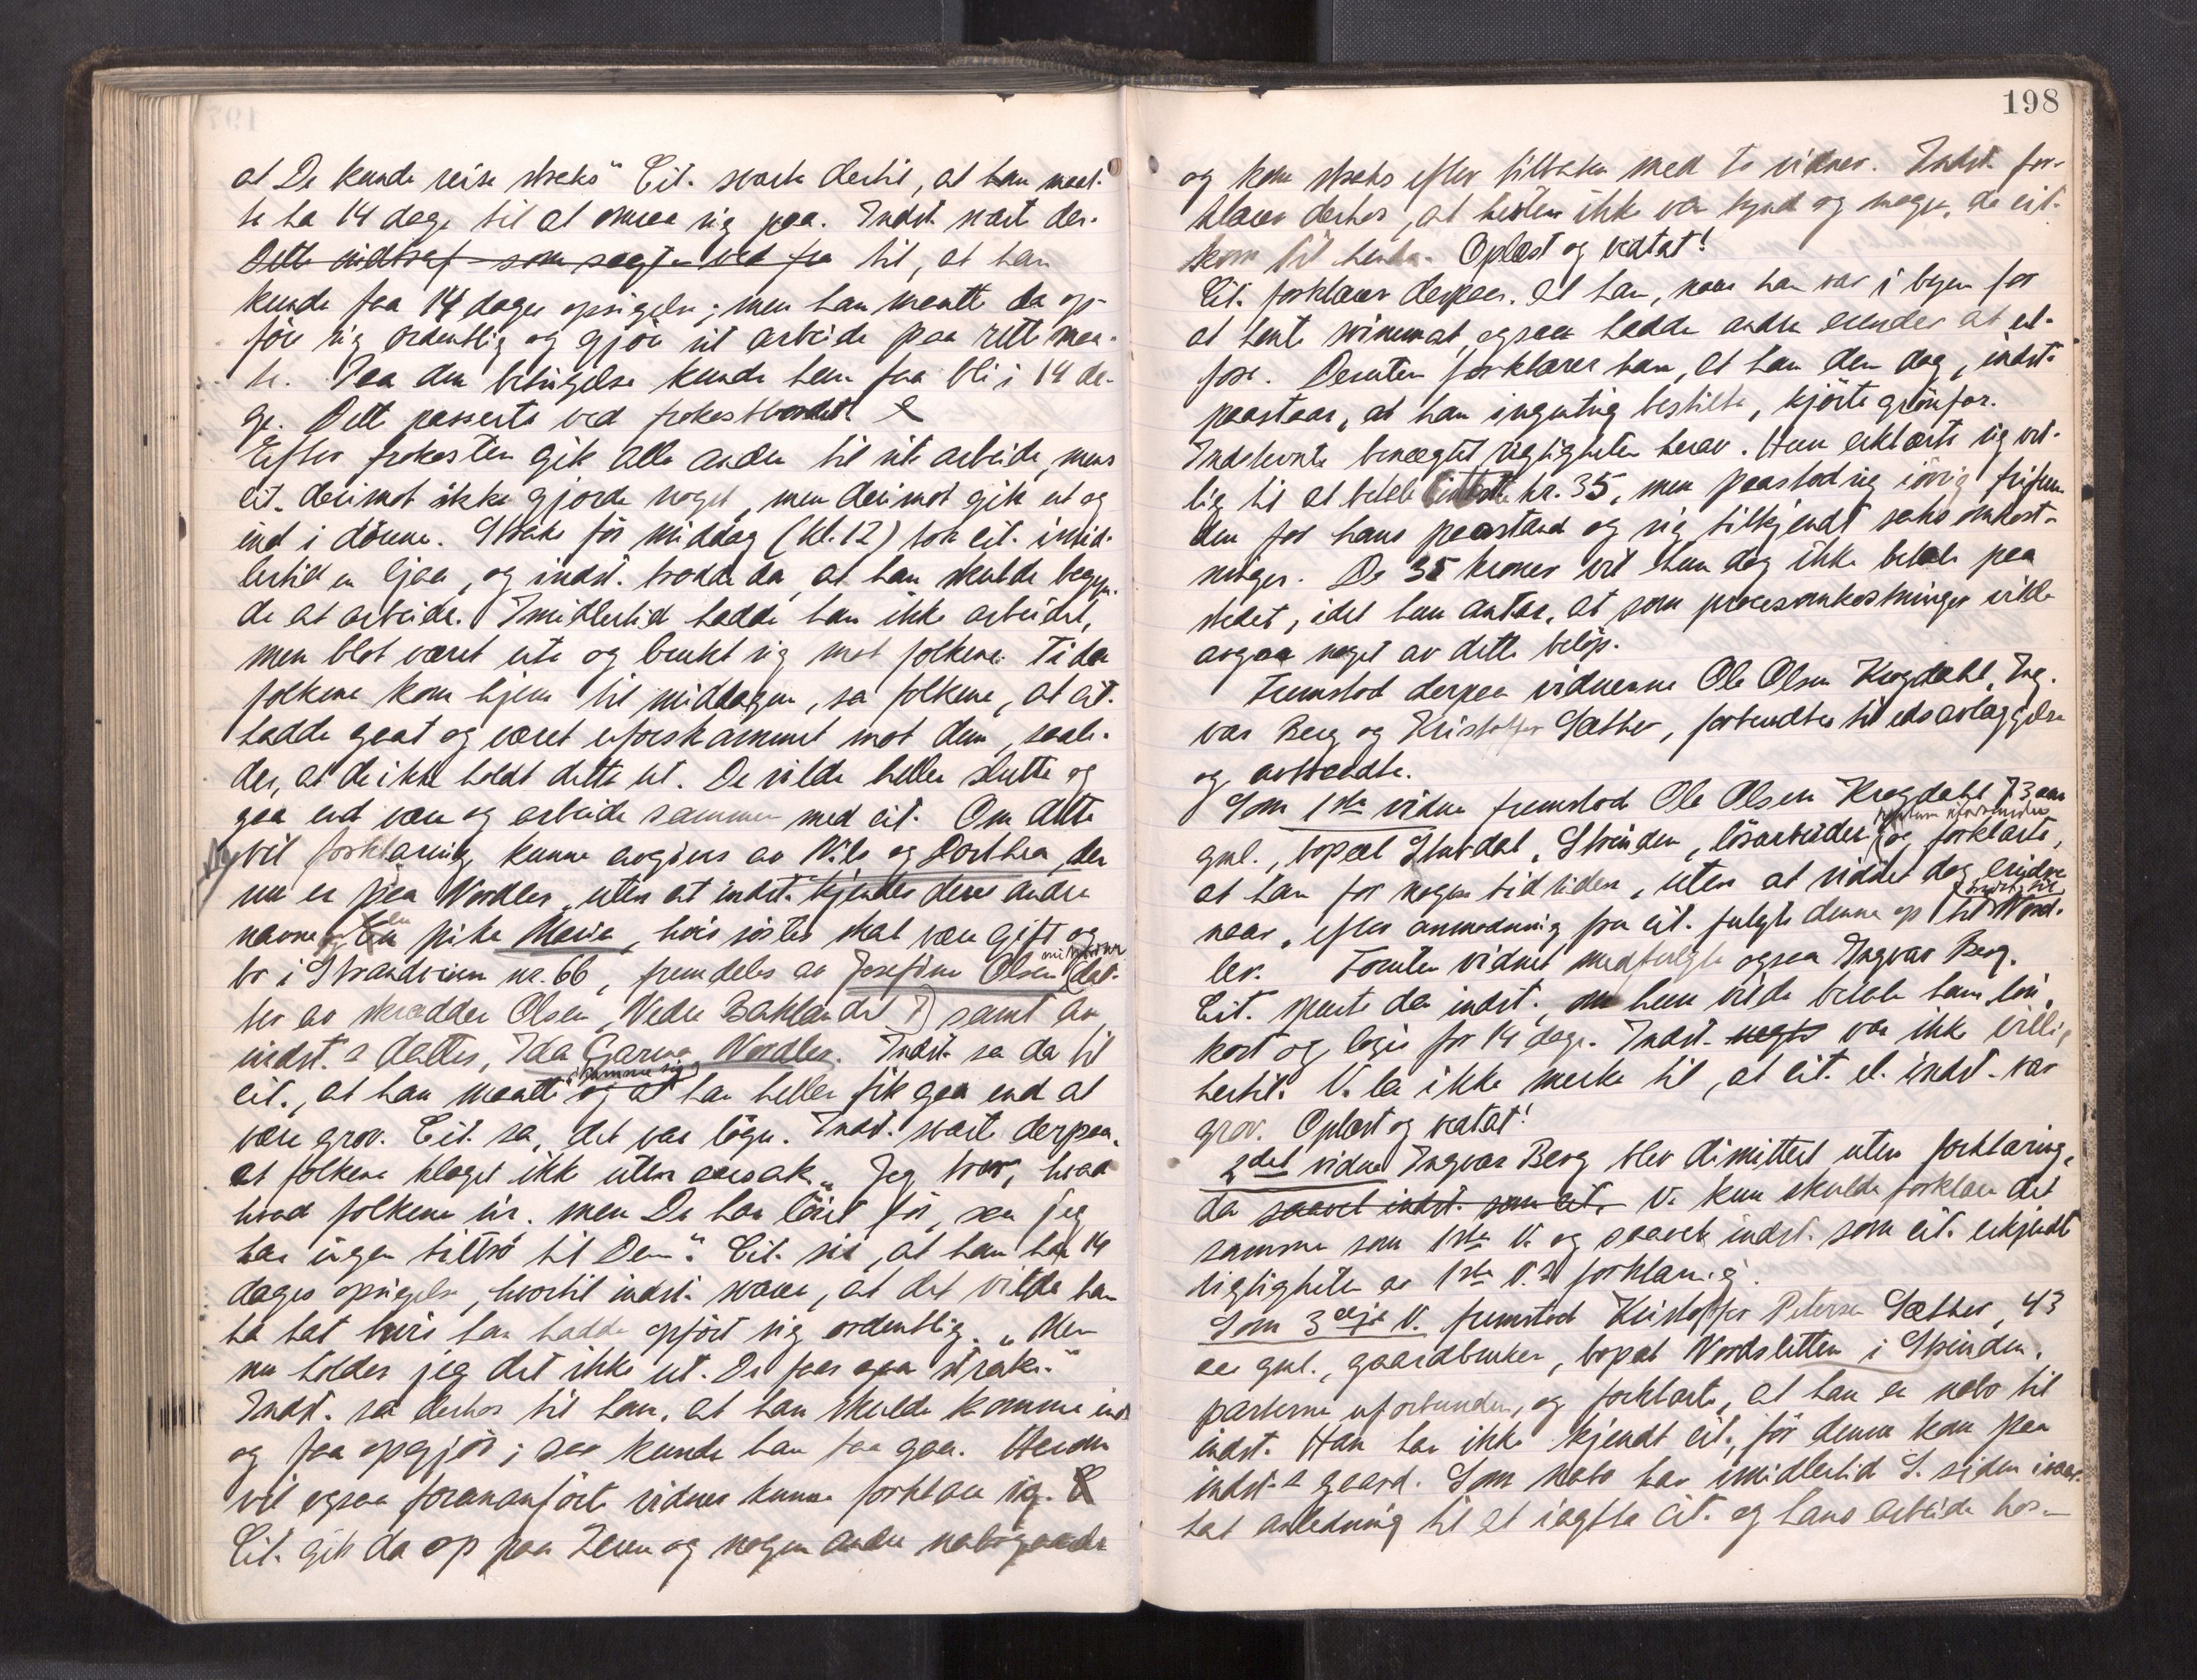 at De kunde reise straks" Cit. svarte dertil, at han maat-
te ha 14 dage til at omsee sig paa. Indst. svart der-
Dette indtraf som sagt ved fro til, at han
kunde faa 14 dages opsigelse; men han maatte da op-
føre sig ordentlig og gjøre sit arbeide paa rette maa-
te. Paa den betingelse kunde han faa bli i 14 da-
ge. Dette passerte ved frokostbordet.
Efter frokosten gik alle andre til sit arbeide, mens
cit. derimot ikke gjorde noget, men derimot gik ut og
ind i dørene. Straks før middag (kl. 12) tok cit. imid-
lertid en ljaa, og indst. trodde da, at han skulde begyn-
de at arbeide. Imidlertid hadde han ikke arbeidet,
men blot været ute og brukt sig mot folkene. Ti da
folkene kom hjem til middagen, sa folkene, at cit.
hadde gaat og været uforskammet mot dem, saale-
des, at de ikke holdt dette ut. De vilde heller slutte og
gaa end være og arbeide sammen med cit. Om dette
vil forklaring kunne avgives av Nils og Dorthea, der
nu er paa Nordlev, uten at indst. kjender deres andre
navne, en pike Marie, hvis søster skal være gift og
bo i Strandveien nr. 66, fremdeles av Josefine Olsen (dat-
ter av skrædder Olsen, Nedre Baklandet 7) samt av
indst.s datter, Ida Garna Nordlev. Indst. sa da til
cit., at han maatte skamme sig og at han heller fik gaa end at
være grov. Cit. sa, det var løgn. Indst. svarte derpaa,
at folkene klaget ikke uten aarsak. "Jeg tror, hvad
hvad folkene sir, men De har løiet før, saa jeg
har ingen tiltro til Dem". Cit. sier, at han har 14
dages opsigelse, hvortil indst. svarer, at det vilde han
ha hat hvis han hadde opført sig ordentlig. "Men
nu holder jeg det ikke ut. De faar gaa straks."
Indst. sa derhos til han, at han skulde komme ind
og faa opgjør; saa kunde han faa gaa. Herom
vil ogsaa forananførte vidner kunne forklare sig.
Cit. gik da op paa Leren og nogen andre nabogaarde
198
og kom straks efter tilbake med to vidner. Indst. for-
klarer derhos, at hesten ikke var tynd og mager, da cit.
kom til hende. Oplæst og vedtat!
Cit. forklarer derpaa, at han, naar han var i byen for
at hente svinemat, ogsaa hadde andre ærender at ut-
føre. Desuten forklarer han, at han den dag, indst.
paastaar, at han ingenting bestilte, kjørte grønfor.
Indstevnte benegtet rigtigheten herav. Hun erklærte sig vil-
lig til at betale kr. 35, men paastod sig iøvrig frifun-
den for hans paastand og sig tilkjendt saks omkost-
ninger. De 35 kroner vil hun dog ikke betale paa
stedet, idet hun antar, at som procesomkostninger vilde
avgaa noget av dette beløp.
Fremstod derpaa vidnerne Ole Olsen Krogdahl, Ing-
var Berg og Kristoffer Sæther, forberedtes til edsavlæggelse
og avtraadte.
Som 1ste vidne fremstod Ole Olsen Krogdahl 73 aar
gml., bopæl Stubdal, Strinden, løsarbeider, og forklarte,
at han for nogen tid siden, uten at vidnet dog erindre
naar, efter anmodning fra cit. fulgte denne op til Nord-
lev. Foruten vidnet medfulgte ogsaa Ingvar Berg.
Cit. spurte da indst., om hun vilde betale ham løn,
kost og logi for 14 dage. Indst. negte var ikke villig
hertil. V. la ikke merke til, at cit. el. indst. var
grov. Oplæst og vedtat!
2det vidne Ingvar Berg blev dimittert uten forklaring,
da saavel indst. som cit. V. kun skulde forklare det
samme som 1ste V. og saavel indst. som cit. erkjendt
rigtigheten av 1ste V.s forklaring.
Som 3edje V. fremstod Kristoffer Petersen Sæther, 43
aar gml., gaardbruker, bopæl Nordsletten i Strinden,
parterne uforbunden, og forklarte, at han er nabo til
indst. Han har ikke kjendt cit., før denne kom paa
indst.s gaard. Som nabo har imidlertid S. siden ivaar
hat anledning til at iagtta cit. og hans arbeide hos